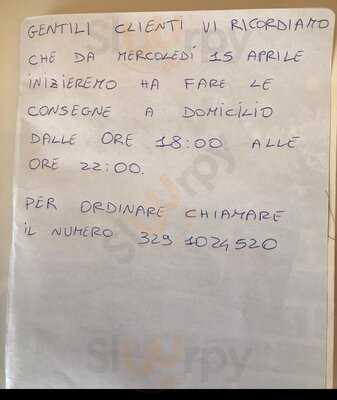 GENTILI CLIENTI VI RICORDIAMO
CHE DA MERCOLEDÌ 15 APRILE
INIZIEREMO HA FARE LE
CONSEGNE A DOMICILIO
DALLE ORE 18:00 ALLE
ORE 22:00.
PER ORDINARE CHIAMARE
IL NUMERO 329 1024520
Sluurpy
Sluurpy
Sluurpy